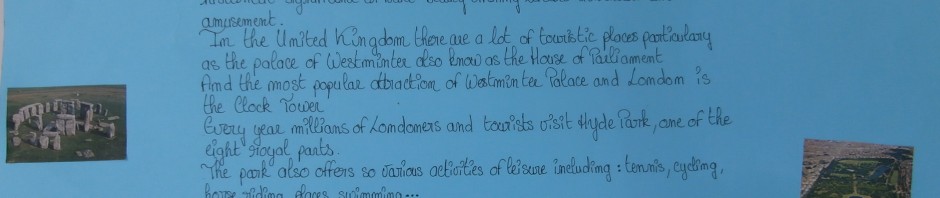 amusement.
In the United Kingdom there are a lot of touristic places particulary
as the palace of Westminter also know as the House of Parliament
And the most popular attraction of Westminter Palace and London is
the Clock Tower
Every year millians of Londoners and tourists visit Hyde Park, one of the
eight royal parts.
The park also offers so various activities of leisure including : tennis, cycling,
horse riding, places swimming...